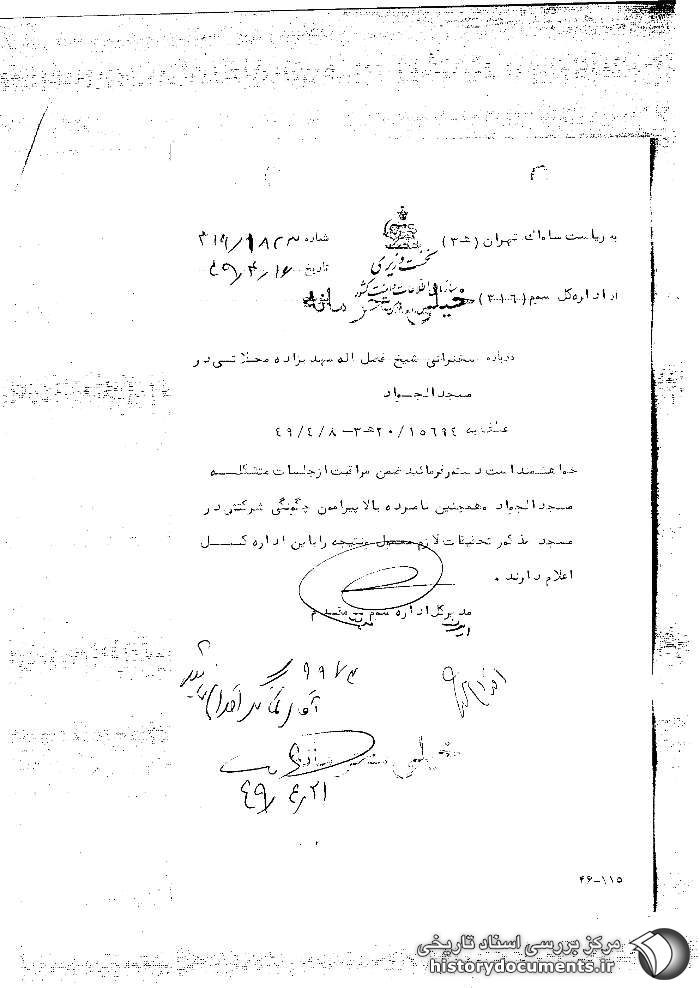 به ریاست ساواك تهران (۳ه‍)
شماره ۳۱۶/۱۸۲۳
نخست وزیری
تاریخ ۴۹/۴/۱۶
سازمان اطلاعات و امنیت کشور
از اداره کل سوم (۳۱۶)
خیلی محرمانه
درباره سخنرانی شیخ فضل اله مهدیزاده محلاتی در
مسجد الجواد
عطف به ۲۰/۱۵۶۹٤ه‍۳-۴۹/٤/۸
خواهشمند است دستور فرمائید ضمن مراقبت از جلسات متشکله
مسجد الجواد همچنین نامبرده بالا پیرامون چگونگی شرکتش در
مسجد مذکور تحقیقات لازم معمول و نتیجه را باین اداره کــل
اعلام دارند .
مدیر کل اداره سوم - مقدم
۹۹۷۳
خیلی محرمانه
۴۹/۴/۲۱
۴۶-۱۱۵
مرکز بررسی اسناد تاریخی
historydocuments.ir